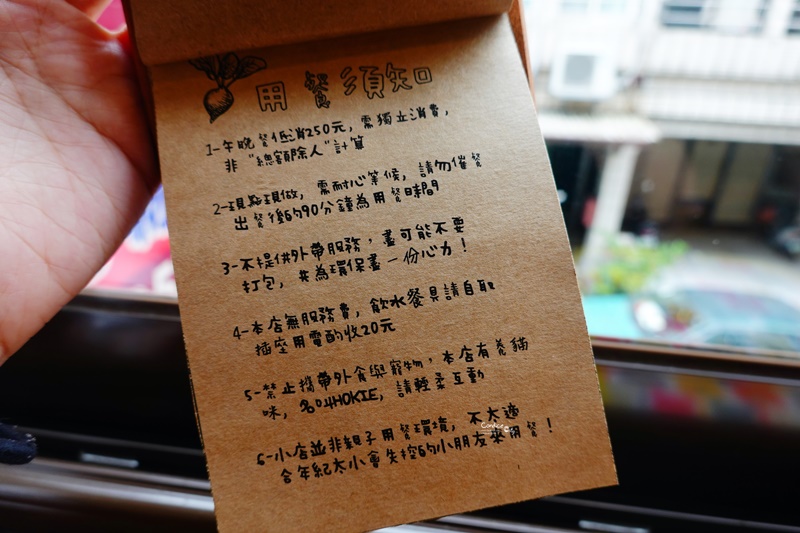 用餐須知
1-午晚餐低消250元，需獨立消費，
非"總額除人"計算
2-現點現做，需耐心等候，請勿催餐
出餐後的90分鐘為用餐時間
3-不提供外帶服務，盡可能不要
打包，共為環保盡一份心力！
4-本店無服務費，飲水餐具請自取
插座用電酌收20元
5-禁止攜帶外食與寵物，本店有養貓
咪，名叫HOKIE，請輕柔互動
6-小店並非親子用餐環境，不太適
合年紀太小會失控的小朋友來用餐！